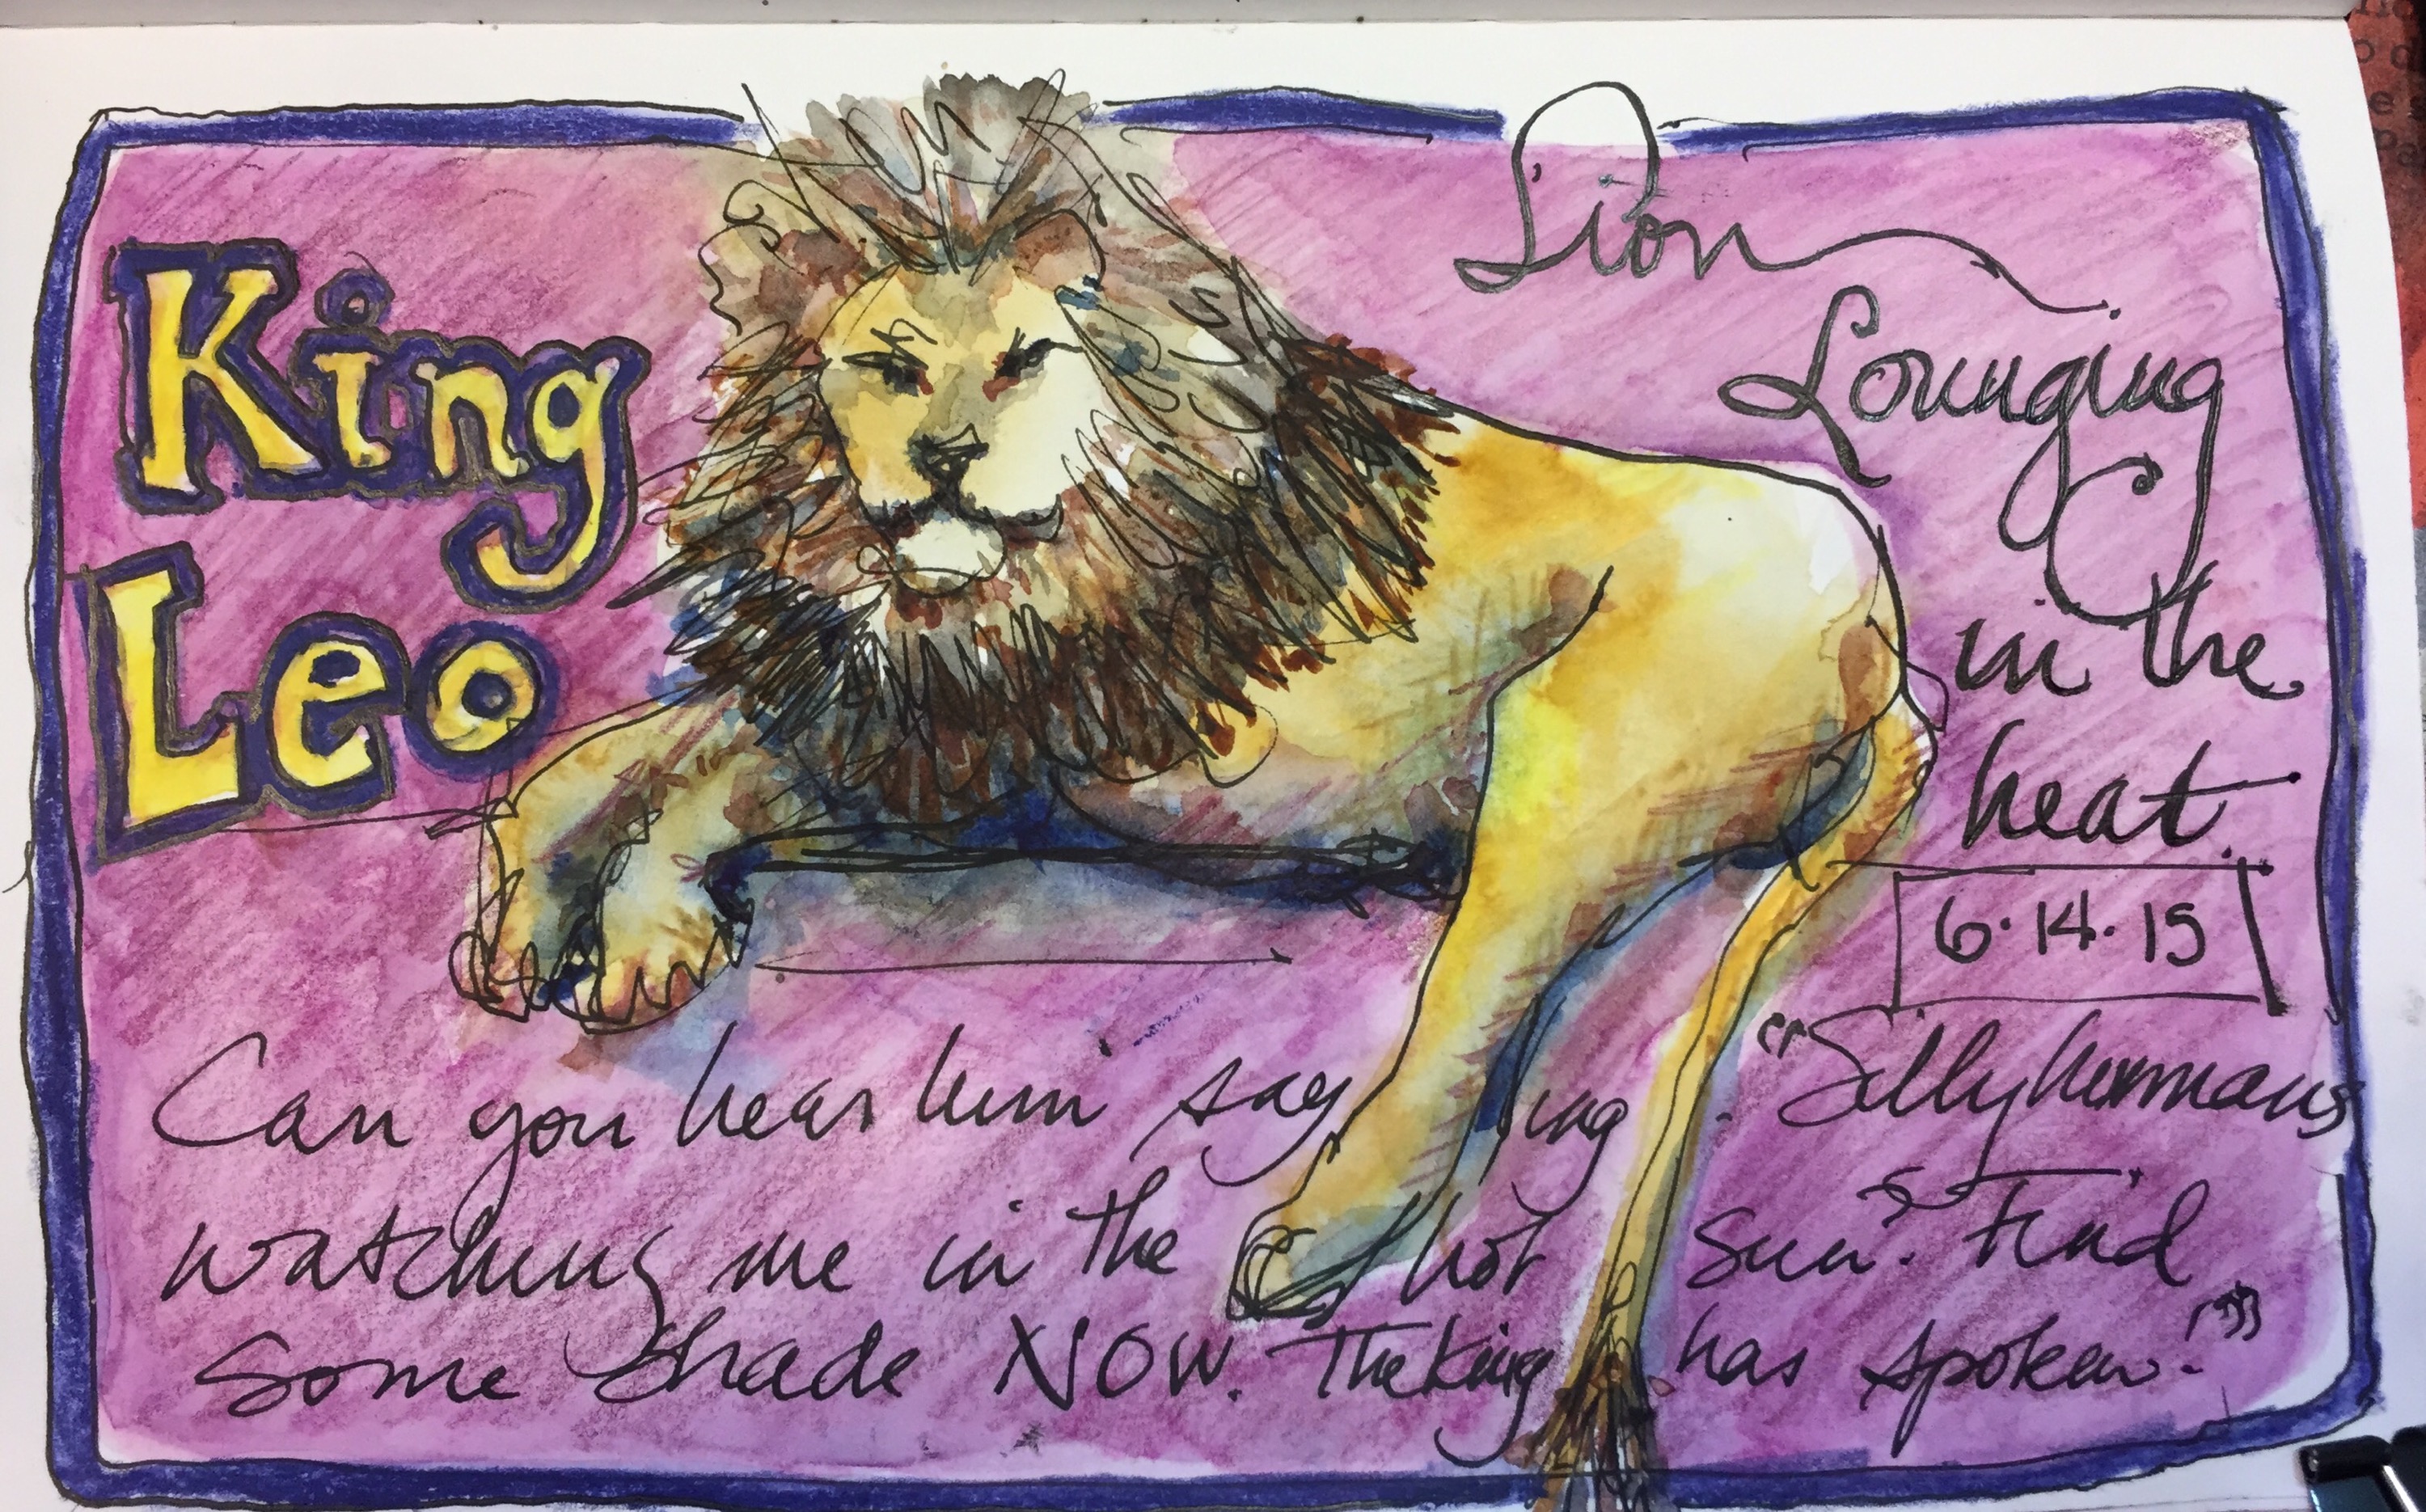 King
Leo
Lion
Lounging
in the
heat.
6.14.15
Can you hear him saying. "Silly humans
watching me in the hot sun. Find
some shade NOW. The king has spoken!"